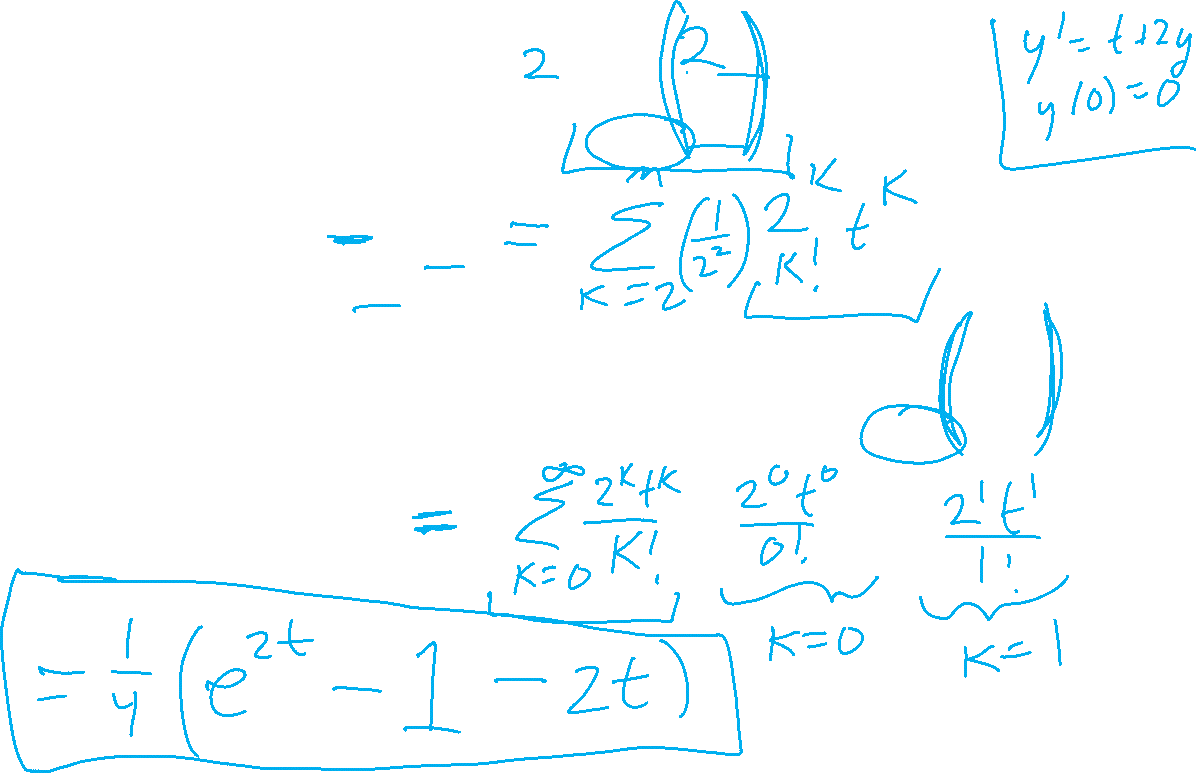 y' = t + 2y
y(0) = 0
2 (2 – )
– – = Σ_{K=2}^{n} (1/2²) 2^K/K! t^K
–
= Σ_{K=0}^{∞} 2^K t^K / K! 2⁰t⁰/0! 2¹t¹/1!
K=0 K=1
= 1/4 (e^{2t} – 1 – 2t)